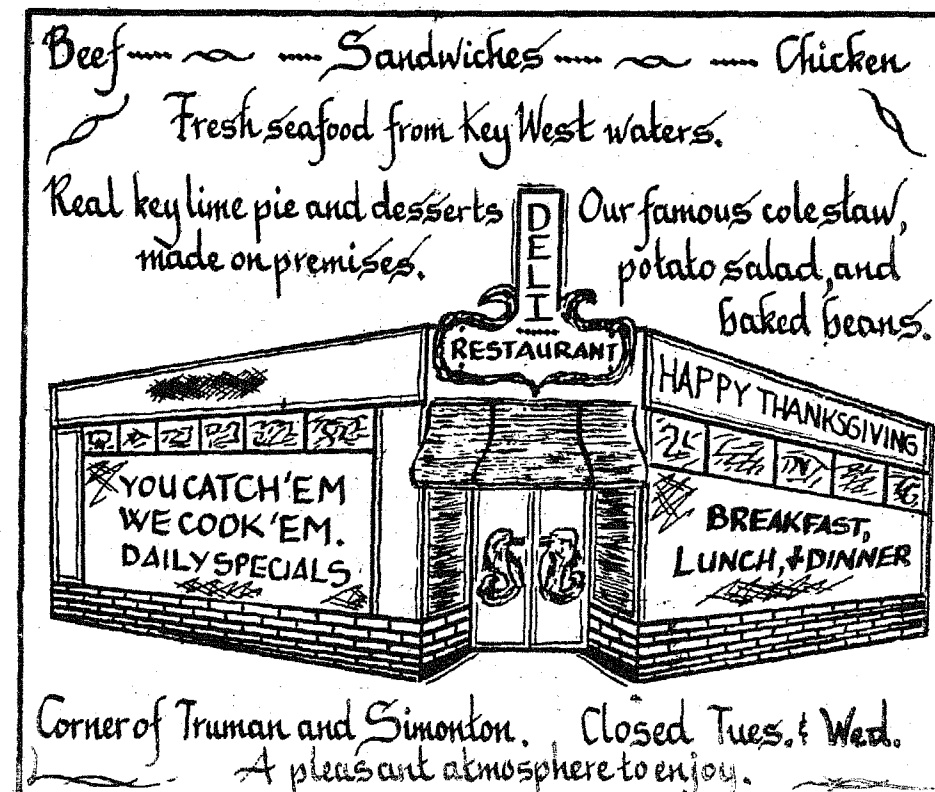 Beef Sandwiches Chicken
Fresh seafood from Key West waters.
Real key lime pie and desserts
made on premises.
Our famous coleslaw,
potato salad, and
baked beans.
DELI
RESTAURANT
HAPPY THANKSGIVING
YOU CATCH'EM
WE COOK'EM.
DAILY SPECIALS
BREAKFAST,
LUNCH, & DINNER
Corner of Truman and Simonton. Closed Tues. & Wed.
A pleasant atmosphere to enjoy.